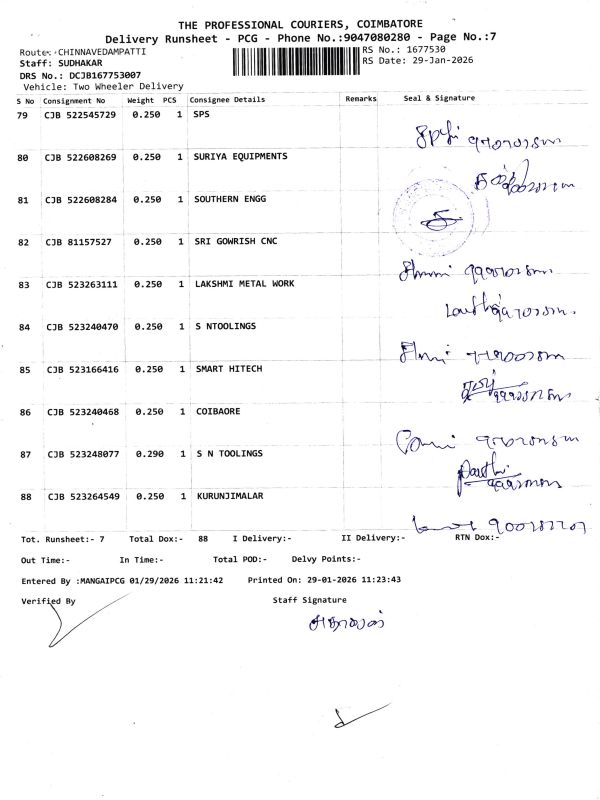 THE PROFESSIONAL COURIERS, COIMBATORE
Delivery Runsheet - PCG - Phone No.:9047080280 - Page No.:7
Route: CHINNAVEDAMPATTI RS No.: 1677530
Staff: SUDHAKAR RS Date: 29-Jan-2026
DRS No.: DCJB167753007
Vehicle: Two Wheeler Delivery
S No Consignment No Weight PCS Consignee Details Remarks Seal & Signature
79 CJB 522545729 0.250 1 SPS
80 CJB 522608269 0.250 1 SURIYA EQUIPMENTS
81 CJB 522608284 0.250 1 SOUTHERN ENGG
82 CJB 81157527 0.250 1 SRI GOWRISH CNC
83 CJB 523263111 0.250 1 LAKSHMI METAL WORK
84 CJB 523240470 0.250 1 S NTOOLINGS
85 CJB 523166416 0.250 1 SMART HITECH
86 CJB 523240468 0.250 1 COIBAORE
87 CJB 523248077 0.290 1 S N TOOLINGS
88 CJB 523264549 0.250 1 KURUNJIMALAR
Tot. Runsheet:- 7 Total Dox:- 88 I Delivery:- II Delivery:- RTN Dox:-
Out Time:- In Time:- Total POD:- Delvy Points:-
Entered By :MANGAIPCG 01/29/2026 11:21:42 Printed On: 29-01-2026 11:23:43
Verified By Staff Signature